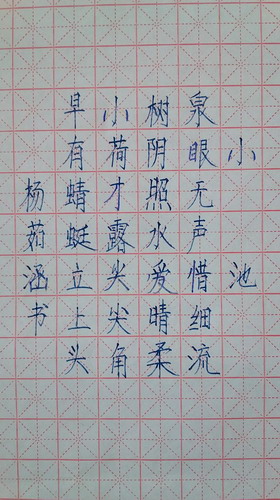 小池
泉眼无声惜细流
树阴照水爱晴柔
小荷才露尖尖角
早有蜻蜓立上头
杨茹涵书